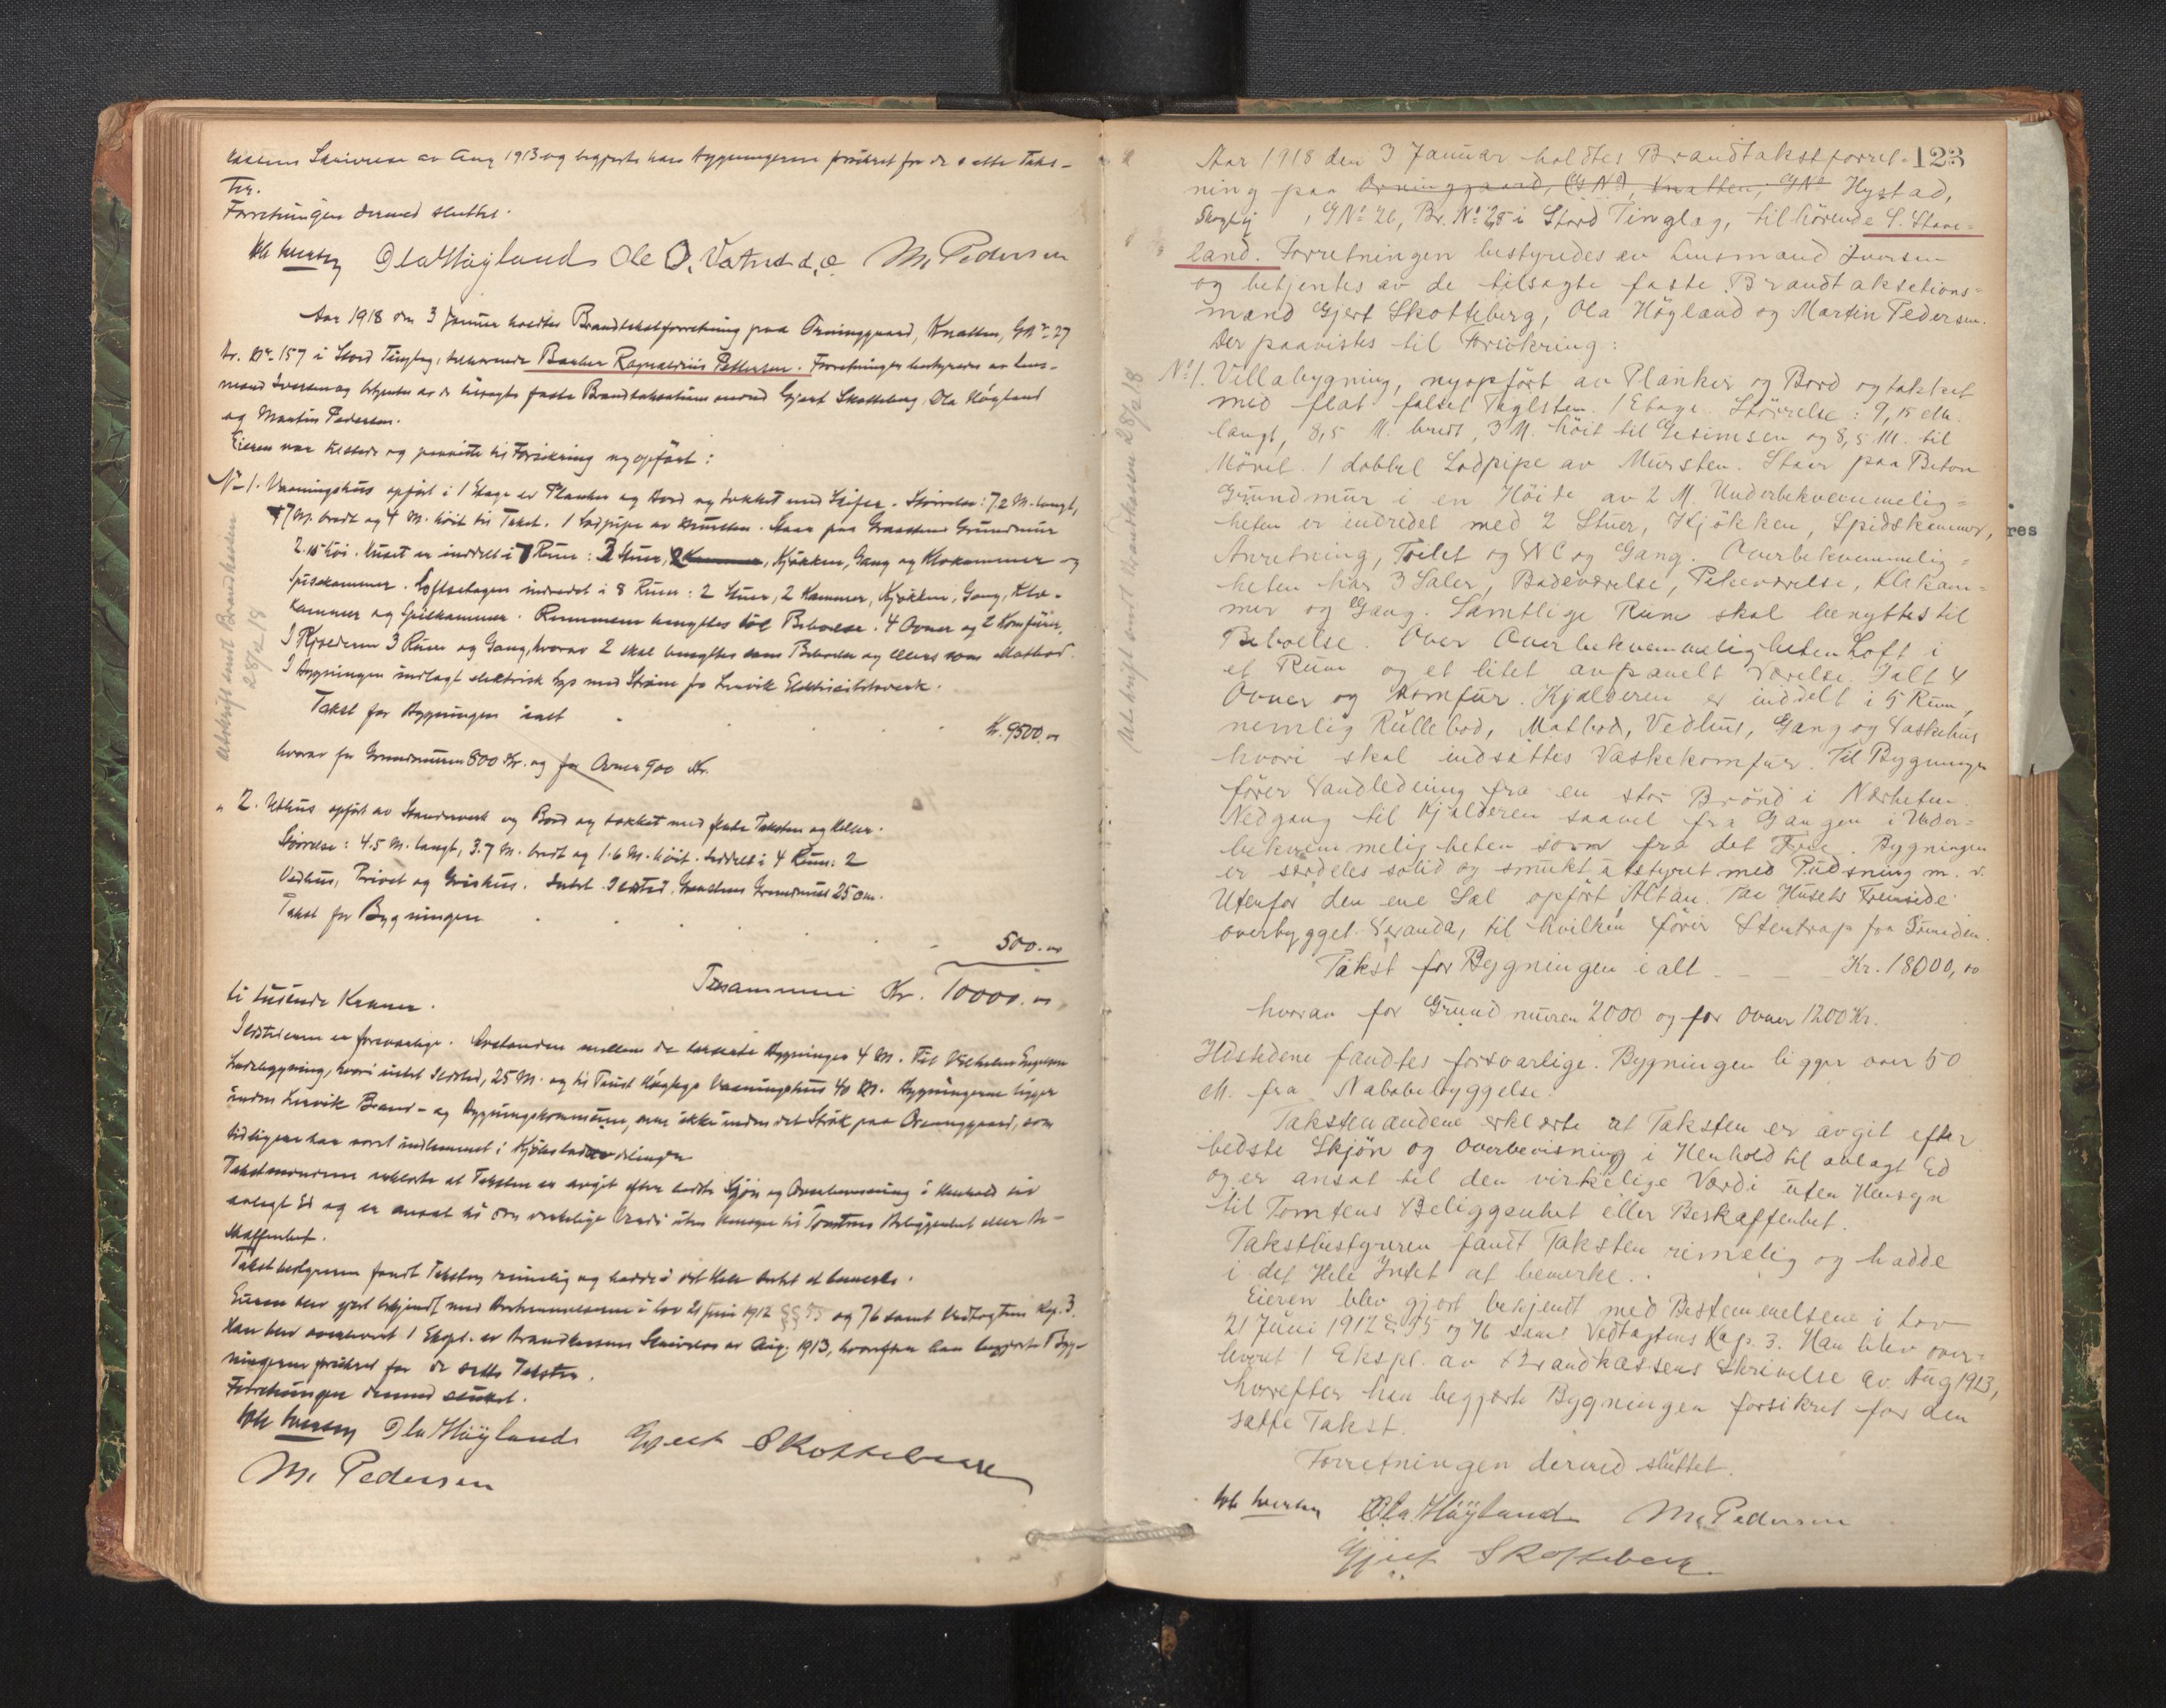 kassens Skrivelse av Aug 1913 og begjærte han Bygningerne forsikret for de satte Taks-
ter.
Forretningen dermed sluttet.
Ola Höyland Ole O. Vatna d.e. M. Pedersen
Aar 1918 den 3 Januar holdtes Brandtakstforretning paa Orninggaard, Knatten, GNr. 27
Br. Nr. 157 i Stord Tinglag, tilhørende Banker Ragnvaldius Pettersen. Forretningen bestyredes av Lens-
mand Iversen og betjentes av de tilsagte faste Brandtakstations mænd Gjert Skotteberg, Ola Höyland
og Martin Pedersen.
Eieren var tilstede og paaviste til Forsikring nyopført:
No 1. Vaaningshus opført i 1 Etage av Planker og Bord og tækket med Skifer. Størrelse: 7,2 M. langt,
7 M. bredt og 4 M. høit til Taket. 1 Lodpipe av Mursten. Staar paa Graastens Grundmur
2.15 høi. Huset er inddelt i 7 Rum: 3 Stuer, Kjøkken, Gang og Klokammer og
Spisekammer. Loftsetagen indredet i 8 Rum: 2 Stuer, 2 Kammer, Kjøkken, Gang, Klo-
kammer og Spisekammer. Rummene benyttes til Beboelse. 4 Ovner og 2 Komfürer.
I Kjælderen 3 Rum og Gang, hvorav 2 skal benyttes som Beboelse og ellers som Matbod.
I Bygningen indlagt elektrisk Lys med Strøm fra Leirvik Elektricitetsverk.
Takst for Bygningen ialt Kr. 9500.00
hvorav for Grundmuren 800 Kr. og for Ovner 900 Kr.
" 2. Uthus opført av Stenderverk og Bord og tækket med flate Taksten og Heller.
Størrelse: 4.5 M. langt, 3.7 M. bredt og 1.6 M. høit. Inddelt i 4 Rum: 2
Vedhus, Privet og Grishus. Intet Ildsted. Graastens Grundmur 25 cm.
Takst for Bygningen 500.00
Tilsammen Kr. 10000.00
ti tusende Kroner.
Ildstederne er forsvarlige. Avstanden mellem de takserte Bygninger 4 M. Til Vilhelm
Ladebygning, hvori intet Ildsted, 25 M. og til Vaaningshus 40 M. Bygningerne ligger
inden Leirvik Brand- og Bygningskommune, men ikke inden det Strøk paa Orninggaard, som
tidligere har været indlemmet i Kjøbstadavdelingen
Takstmændene erklærte at Taksten er avgit efter bedste Skjøn og Overbevisning i Henhold til
avlagt Ed og er ansat til den virkelige Værdi uten Hensyn til Tomtens Beliggenhet eller Be-
skaffenhet.
Takstbestyreren fandt Taksten rimelig og hadde i det Hele Intet at bemerke.
Eieren blev gjort bekjendt med Bestemmelserne i Lov 21 Juni 1912 §§ 55 og 76 samt Vedtægtens Kap. 3.
Han blev overlevert 1 Ekspl. av Brandkassens Skrivelse av Aug. 1913, hvorefter han begjærte Byg-
ningerne forsikret for de satte Takster.
Forretningen dermed sluttet.
Ola Höyland Gjert Skotteberg
M. Pedersen
Avskrift sendt Brandkassen
28/2 18
123
Aar 1918 den 3 Januar holdtes Brandtakstforret-
ning paa Orninggaard, (GNo), Knatten, GNo Hystad,
Skoglij, GNo 26, Br. No 25 i Stord Tinglag, tilhörende S. Stave-
land. Forretningen bestyredes av Lensmand Iversen
og betjentes av de tilsagte faste Brandtaksations-
mænd Gjert Skotteberg, Ola Höyland og Martin Pedersen.
Der paavistes til Forsikring:
No 1. Villabygning, nyopført av Planker og Bord og tækket
med flat falset Taglsten. 1 Etage. Störrelse: 9,15 M.
langt, 8,5 M. bredt, 3 M. höit til Gesimsen og 8,5 M. til
Mönet. 1 dobbel Lodpipe av Mursten. Staar paa Beton
Grundmur i en Höide av 2 M. Underbekvemmelig-
heten er indredet med 2 Stuer, Kjökken, Spiskammer,
Anretning, Toilet og WC og Gang. Overbekvemmelig-
heten har 3 Saler, Badeværelse, Pikeværelse, Klakam-
mer og Gang. Samtlige Rum skal benyttes til
Beboelse. Over Overbekvemmeligheten Loft i
et Rum og et litet avpanelt Værelse. Ialt 4
Ovner og Komfur. Kjælderen er inddelt i 5 Rum,
nemlig Rullebod, Matbod, Vedhus, Gang og Vaskehus
hvori skal indsættes Vaskekomfur. Til Bygningen
förer Vandledning fra en stor Brönd i Nærheten.
Nedgang til Kjælderen saavel fra Gangen i Under-
bekvemmeligheten som fra det Frie. Bygningen
er særdeles solid og smukt utstyret med Pudsning m. v.
Utenfor den ene Sal opfört Altan. Paa Husets Fremside
overbygget Veranda, til hvilken förer Stentrap fra Grunden.
Takst for Bygningen ialt - - Kr. 18000,00
hvorav for Grundmuren 2000 og for Ovner 1200 Kr.
Ildstedene fandtes forsvarlige. Bygningen ligger over 50
M. fra Nabobebyggelse.
Takstmændene erklærte at Taksten er avgit efter
bedste Skjön og Overbevisning i Henhold til avlagt Ed
og er ansat til den virkelige Værdi uten Hensyn
til Tomtens Beliggenhet eller Beskaffenhet.
Takstbestyreren fandt Taksten rimelig og hadde
i det Hele Intet at bemerke.
Eieren blev gjort bekjendt med Bestemmelsene i Lov
21 Juni 1912 §§ 55 og 76 samt Vedtægtens Kap. 3. Han blev over-
leveret 1 Ekspl. av Brandkassens Skrivelse av Aug 1913,
hvorefter han begjærte Bygningen forsikret for den
satte Takst.
Forretningen dermed sluttet.
Ola Höyland M. Pedersen
Gjert Skotteberg
Utskrift sendt Brandkassen 28/2 18
res